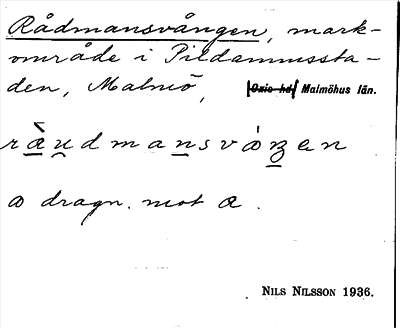 Rådmansvången, mark-
område i Pildammssta-
den, Malmö, Oxie hd Malmöhus län.
ràu̯dmansvȧŋen
a dragn. mot æ.
NILS NILSSON 1936.